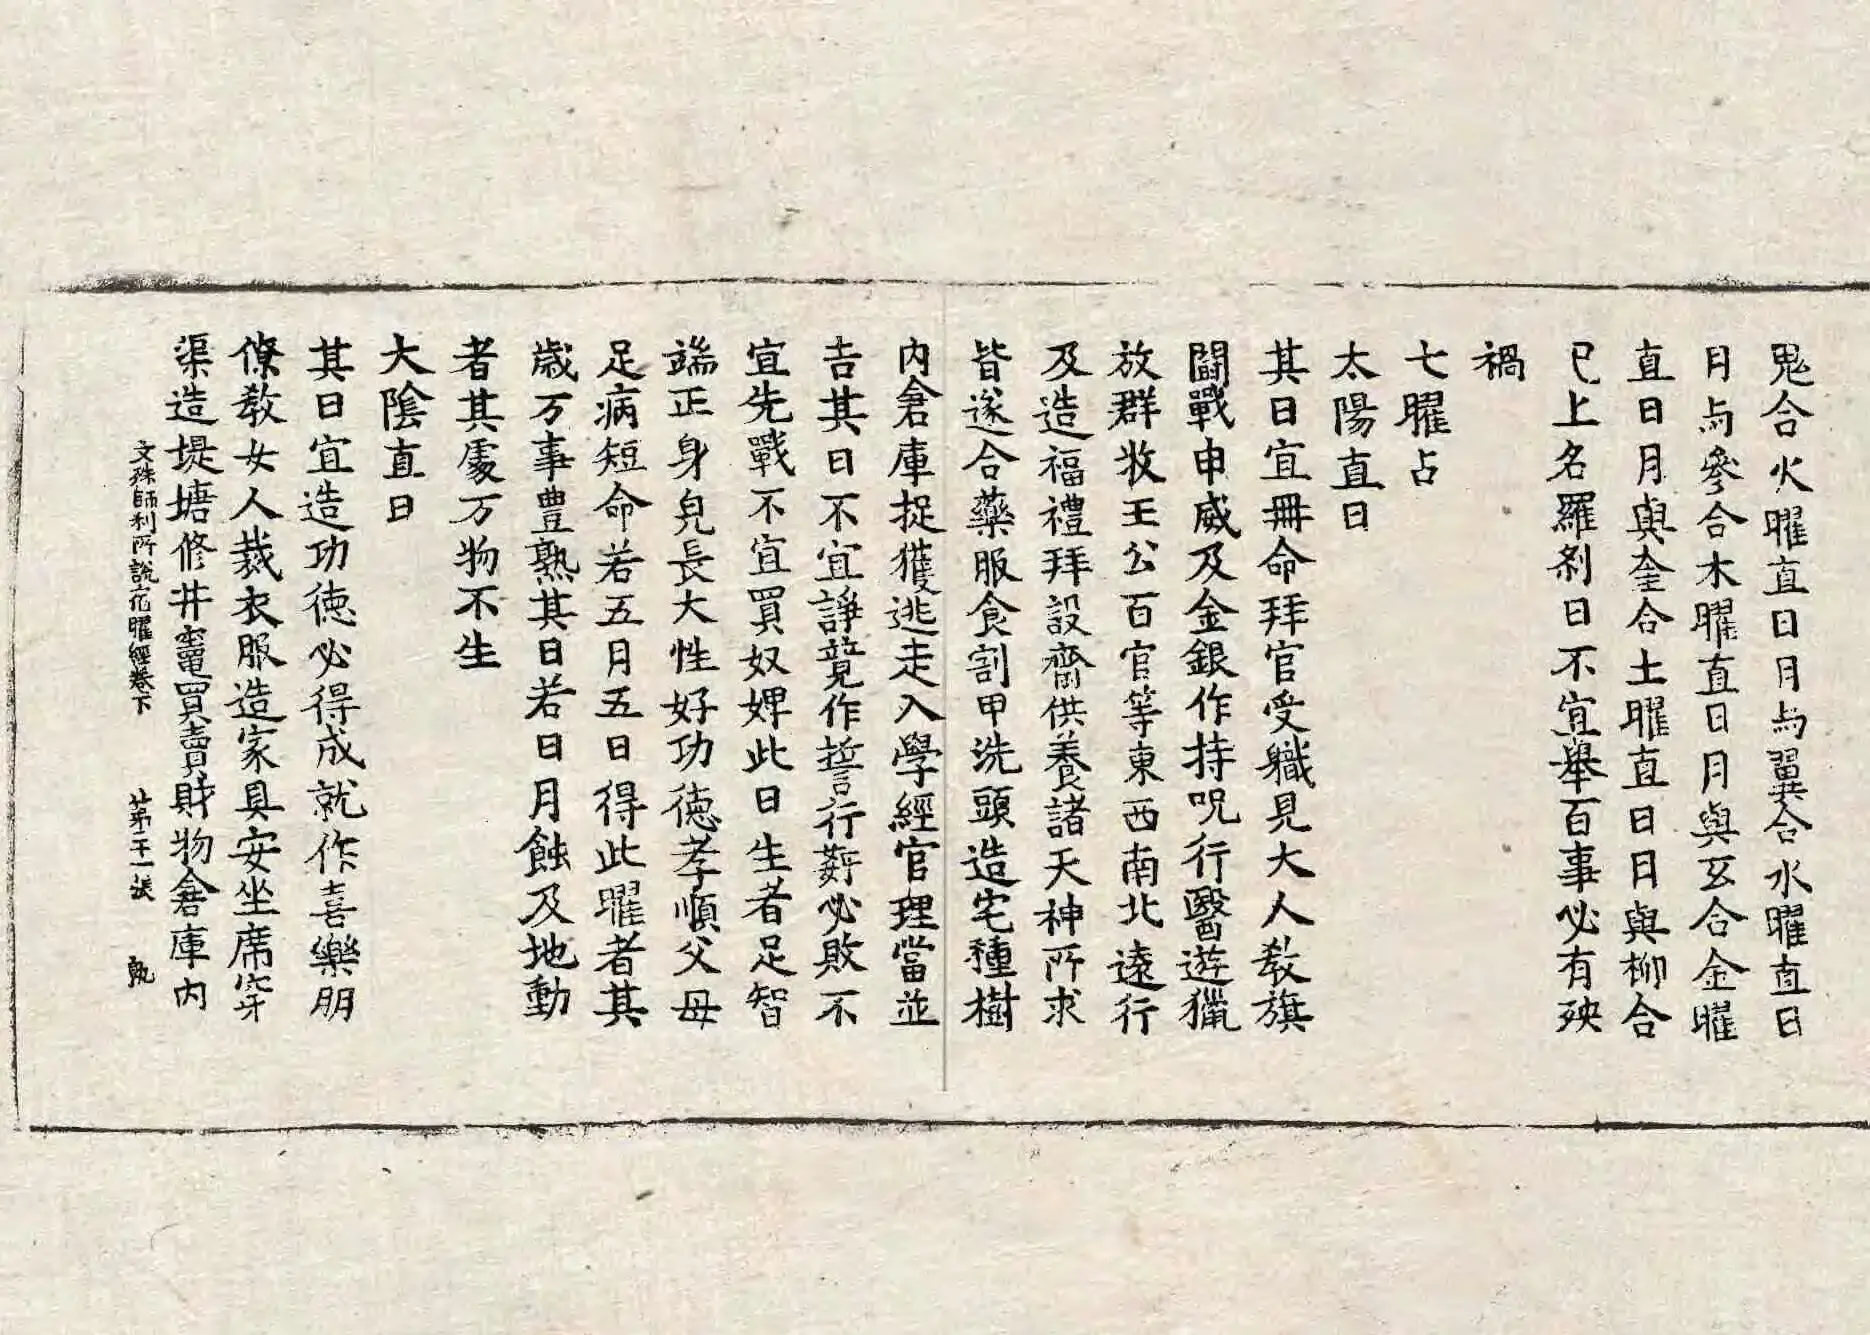 鬼合火曜直日月与翼合水曜直日
月与參合木曜直日月與玄合金曜
直日月與奎合土曜直日日與柳合
已上名羅剎日不宜舉百事必有殃
禍
七曜占
太陽直日
其日宜冊命拜官受職見大人教旗
鬪戰申威及金銀作持呪行醫遊獵
放群牧王公百官等東西南北遠行
及造福禮拜設齋供養諸天神所求
皆遂合藥服食割甲洗頭造宅種樹
內倉庫捉獲逃走入學經官理當並
吉其日不宜諍競作誓行姧必敗不
宜先戰不宜買奴婢此日生者足智
端正身皃長大性好功德孝順父母
足病短命若五月五日得此曜者其
歲万事豊熟其日若日月蝕及地動
者其處万物不生
大陰直日
其日宜造功德必得成就作喜樂朋
僚教女人裁衣服造家具安坐席穿
渠造堤塘修井竈買賣財物倉庫內
文殊師利所說宿曜經卷下 第二十一張 執